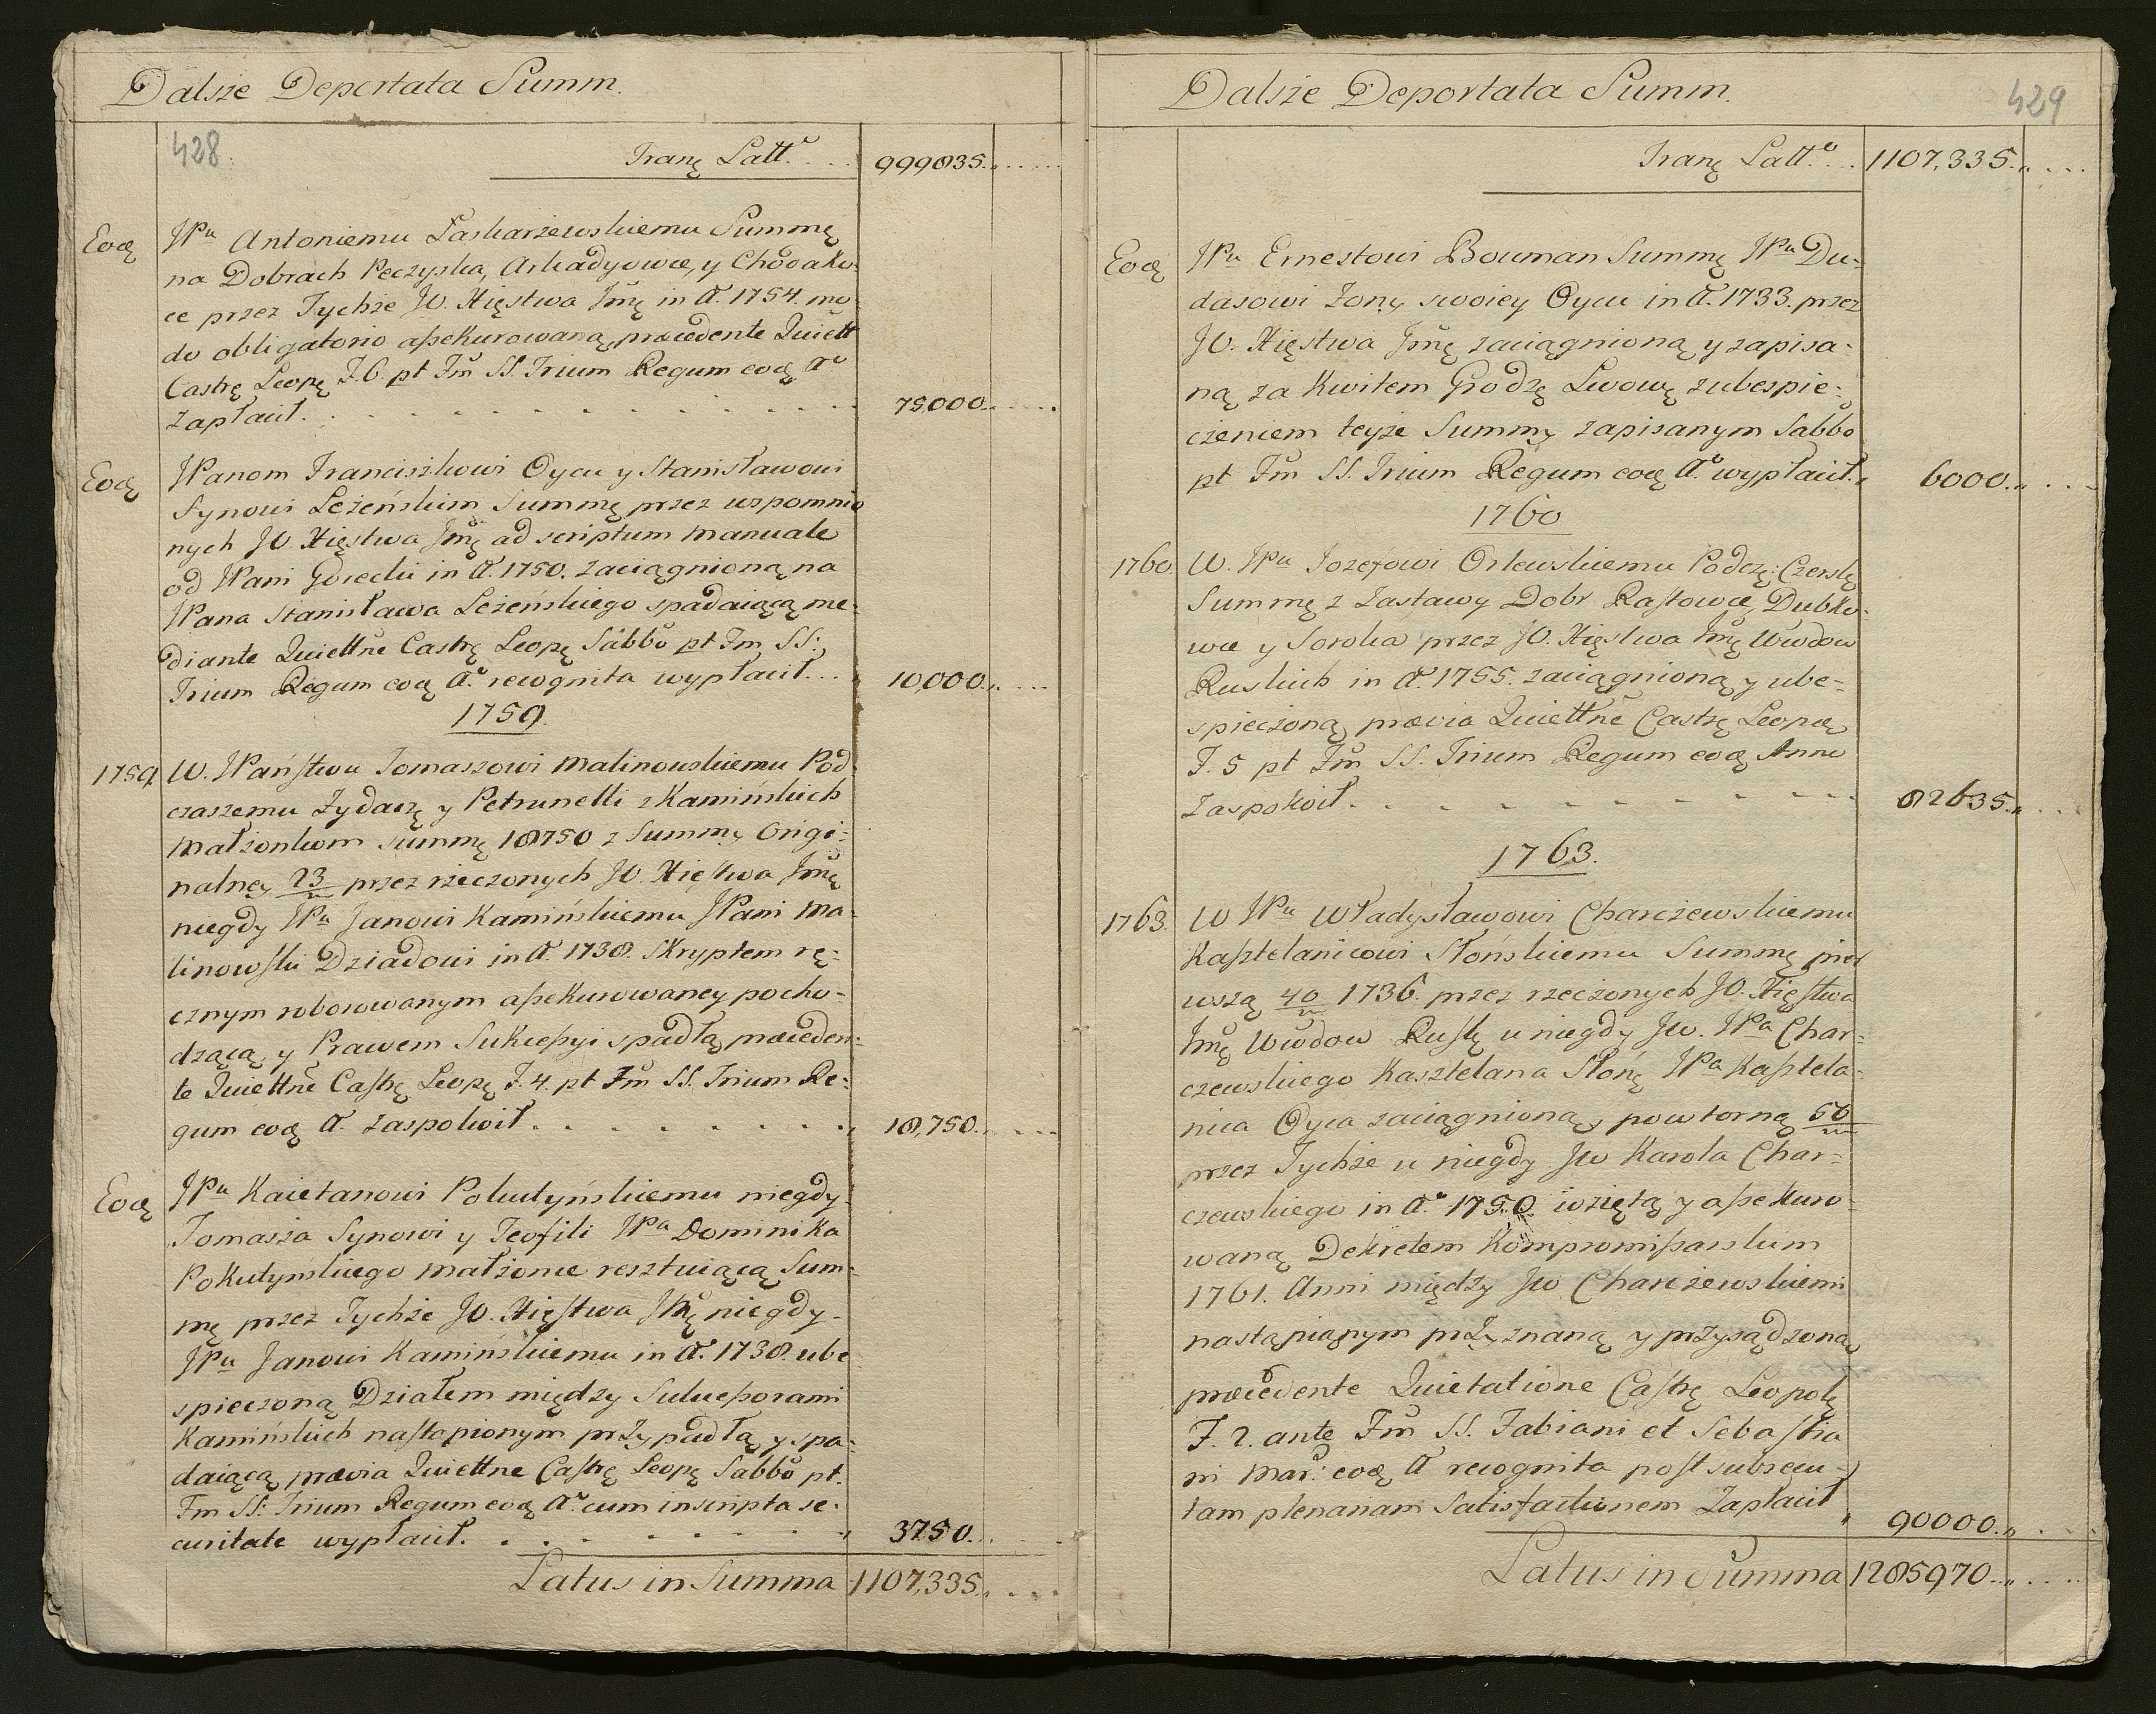 Dalsze Deportata Summ.
428.
Tranę Latt.º . . 999835.
Eođ JPu Antoniemu Laskarzewskiemu Summę
na Dobrach Peczyska, Arkadyowce, y Chodako-
ce przez Tychże JO. Xięstwa Jmę in Aº. 1754. mo-
do obligatorio assekurowaną, præcedente Quiett
Castrę Leopę F. 6. pt Fm SS. Trium Regum eođ Aº
zapłacił. . . . 75,000.
Eođ JPanom Franciszkowi Oycu y Stanisławowi
Synowi Leżeńskim Summę przez wspomnio
nych JO. Xięstwa Jmę ad scriptum manuale
od JPani Gorecki in Aº. 1750. zaciągnioną na
JPana Stanisława Leżeńskiego spadaiącą me-
diante Quiettne Castrę Leopę Sabbo pt Fm SS:
Trium Regum eođ Aº. recognita wypłacił. . . 10,000.
1759.
1759 W. JPaństwu Tomaszowi Malinowskiemu Pod
czaszemu Żydaczę y Petrunelli z Kamińskich
Małżonkom Summę 18750 z Summy Origi-
nalney 23/m przez rzeczonych JO. Xięstwa Jmę
niegdy JPu Janowi Kamińskiemu JPani Ma-
linowski Dziadowi in Aº. 1738. Skryptem rę-
cznym roborowanym assekurowaney pocho-
dzącą, y Prawem Sukcessyi spadłą, præceden-
te Quiettne Castrę Leopę F. 4. pt Fm SS. Trium Re-
gum eođ A. zaspokoił . . . 18,750.
Eođ JPu Kaietanowi Pokutyńskiemu niegdy
Tomasza Synowi y Teofili JPa Dominika
Pokutyńskiego Małżonce resztuiącą Sum-
mę przez Tychże JO. Xięstwa Jmę niegdy
JPu Janowi Kamińskiemu in Aº. 1738. ube
spieczoną Działem między Sukcessorami
Kamińskich nastąpionym przypadłą y spa-
daiącą prævia Quiettne Castrę Leopę Sabbo pt.
Fm SS: Trium Regum eođ Aº. cum inscripta se-
curitate wypłacił. . . . 3750.
Latus in Summa 1107,335.
Dalsze Deportata Summ.
429
Tranę Latt.º . . 1107,335.
Eođ JPu Ernestowi Bouman Summę JPu Du-
dasowi Żony swoiey Oycu in Aº. 1733. przez
JO. Xięstwa Jmę zaciągnioną y zapisa-
ną za Kwitem Grodzę Lwowę zubespie-
czeniem teyże Summy zapisanym Sabbo
pt Fm SS. Trium Regum eođ Aº. wypłacił. 6000.
1760
1760. W. JPu Jozefowi Orlewskiemu Podczę: Czerskę
Summę z Zastawy Dobr Rastowce, Dubko-
wce y Soroka przez JO. Xięstwa Jmę Wwdow
Ruskich in Aº. 1755. zaciągnioną y ube-
spieczoną prævia Quiettne Castrę Leopæ
F. 5 pt Fm SS. Trium Regum eođ Anno
Zaspokoił. . . . 82635.
1763.
1763. W JPu Władysławowi Charczewskiemu
Kasztelanicowi Słońskiemu Summę pier
wszą 40/m 1736. przez rzeczonych JO. Xięstwa
Jmę Wwdow Ruskę u niegdy JW. JPa Char-
czewskiego Kasztelana Słonę JPa Kasztela-
nica Oyca zaciągnioną, powtorną 50/m
przez Tychże u niegdy JW Karola Char-
czewskiego in Aº. 1750. wziętą y assekuro-
waną Dekretem Kompromissarskim
1761. Anni między JW Charczewskiemi
nastąpionym przyznaną y przysądzoną
præcedente Quietatione Castrę Leopolę
F. 2. ante Fm SS. Fabiani et Sebastia
ni Mar: eođ A recognita post subsecu-
tam plenariam Satisfactionem Zapłacił 90000.
Latus in Summa 1285970.